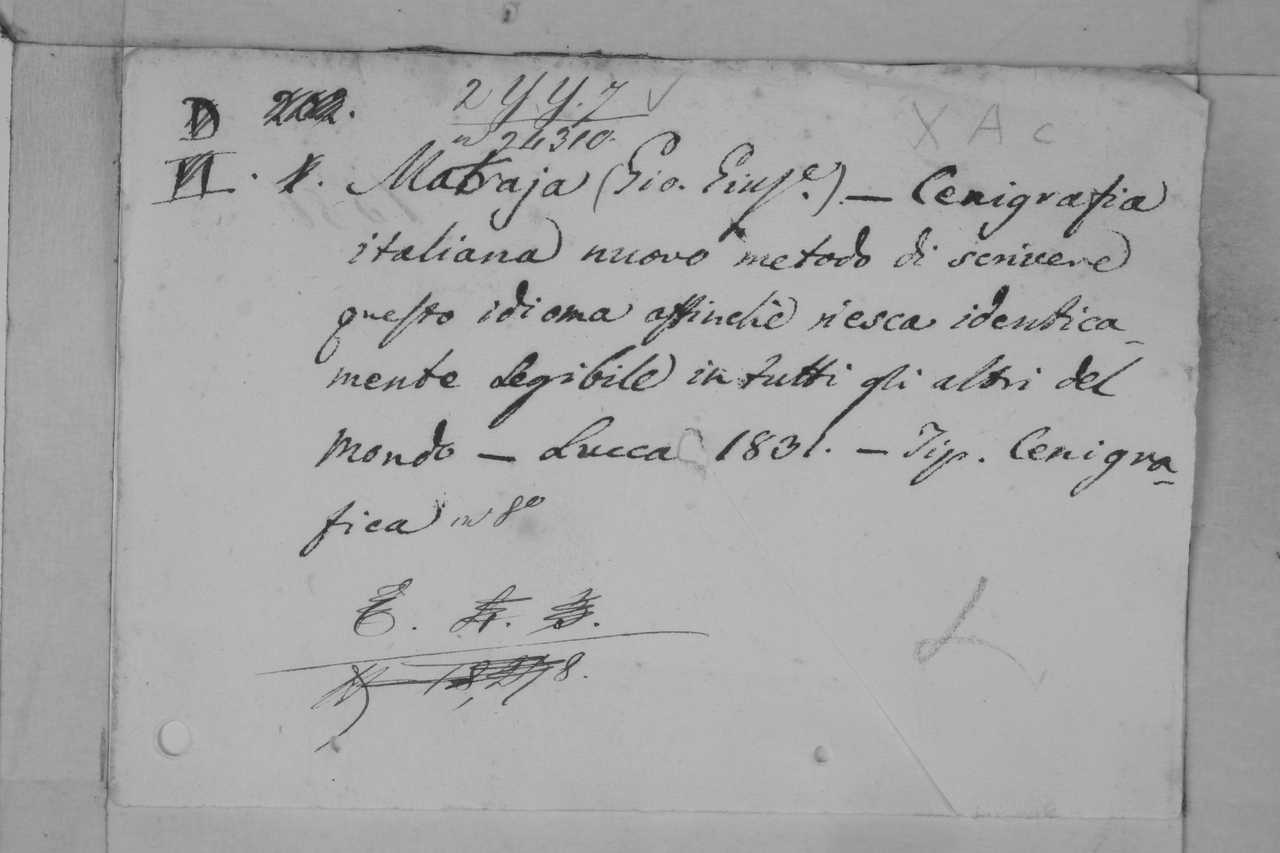 2 Y Y. 7
n 24310.
X A c
D
VI.
Matraja (Gio. Giuse.) — Cenigrafia
italiana nuovo metodo di scrivere
questo idioma affinchè riesca identica-
mente legibile in tutti gli altri del
mondo — Lucca 1831. — Tip. Cenigra-
fica in 8o
E.
L